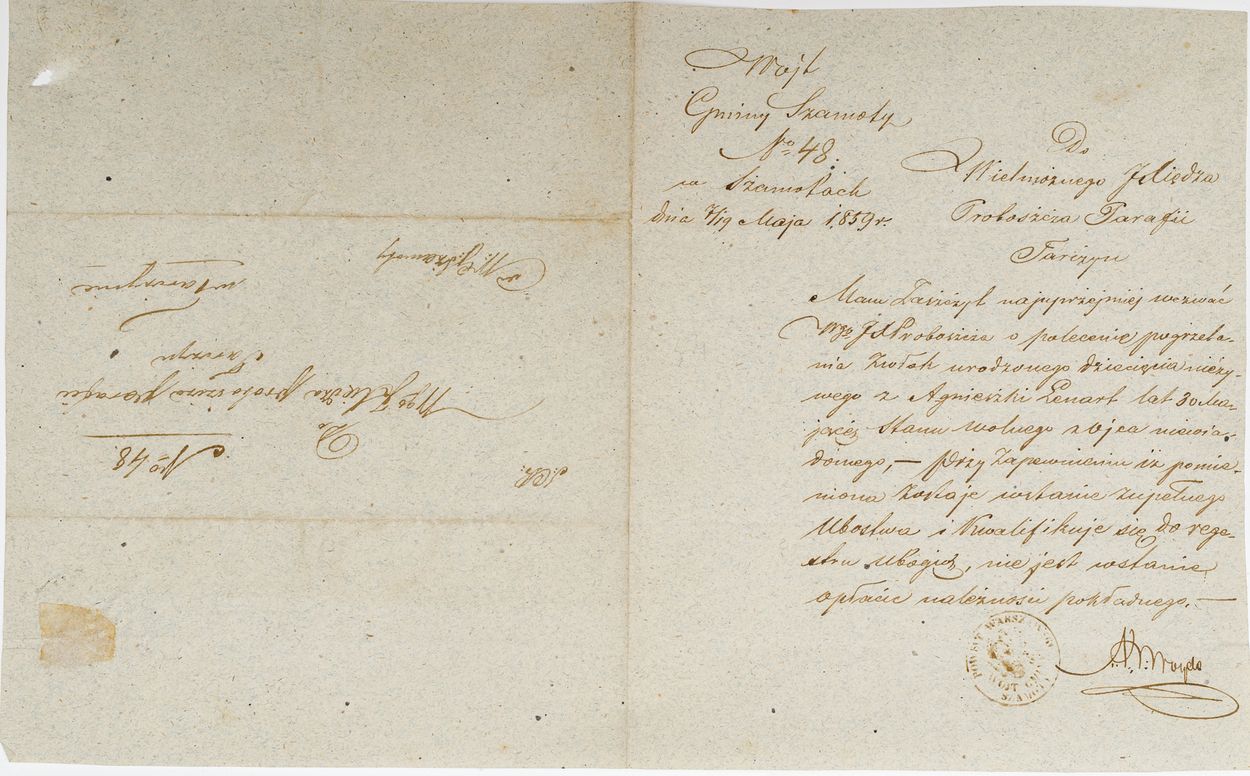 Wojt
Gminy Szamoty
No 48.
w Szamotach
dnia 7/19 Maja 1859 r.
Do
Wielmożnego JXiędza
Proboszcza Parafii
Tarczyn
Mam Zaszczyt najuprzejmiej wezwać
Wgo JX Proboszcza o polecenie pogrzeba-
nia Zwłok urodzonego dziecięcia nieży-
wego z Agnieszki Lenart lat 30 Ma-
jącej Stanu wolnego z Ojca niewia-
domego, — przy Zapewnieniu iż pomie-
niona Zostaje wstanie Zupełnego
Ubostwa i Kwalifikuje się do rege-
stru Ubogich, nie jest wstanie
opłacić należności pokładnego. —
POWIAT WARSZAWSKI
WOJT GMINY
SZAMOTY
No 48.
Do
Wgo JXiędza Proboszcza Parafii
Tarczyn
w Tarczynie
W. G. Szamoty